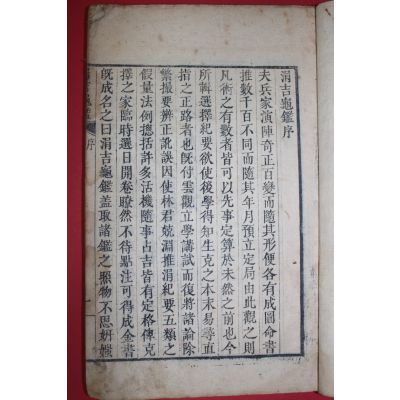 涓吉龜鑑序
夫兵家演陣奇正百變而隨其形便各有成圖命書
推數千百不同而隨其年月預立定局由此觀之則
凡術之有數者皆可以先事定算於未然之前也今
所輯選擇紀要欲使後學得知生克之本末易尋直
指之正路者也旣付雲觀立學講試而復將諸論除
繁撮要辨正訛誤因使林君毓淵推涓紀要五類之
假量法例摠括許多活機隨事占吉皆有定格俾克
擇之家臨時選日開卷瞭然不待點注可得成金書
旣成名之曰涓吉龜鑑盖取諸鑑之照物不思姸媸
涓吉龜鑑 序 一